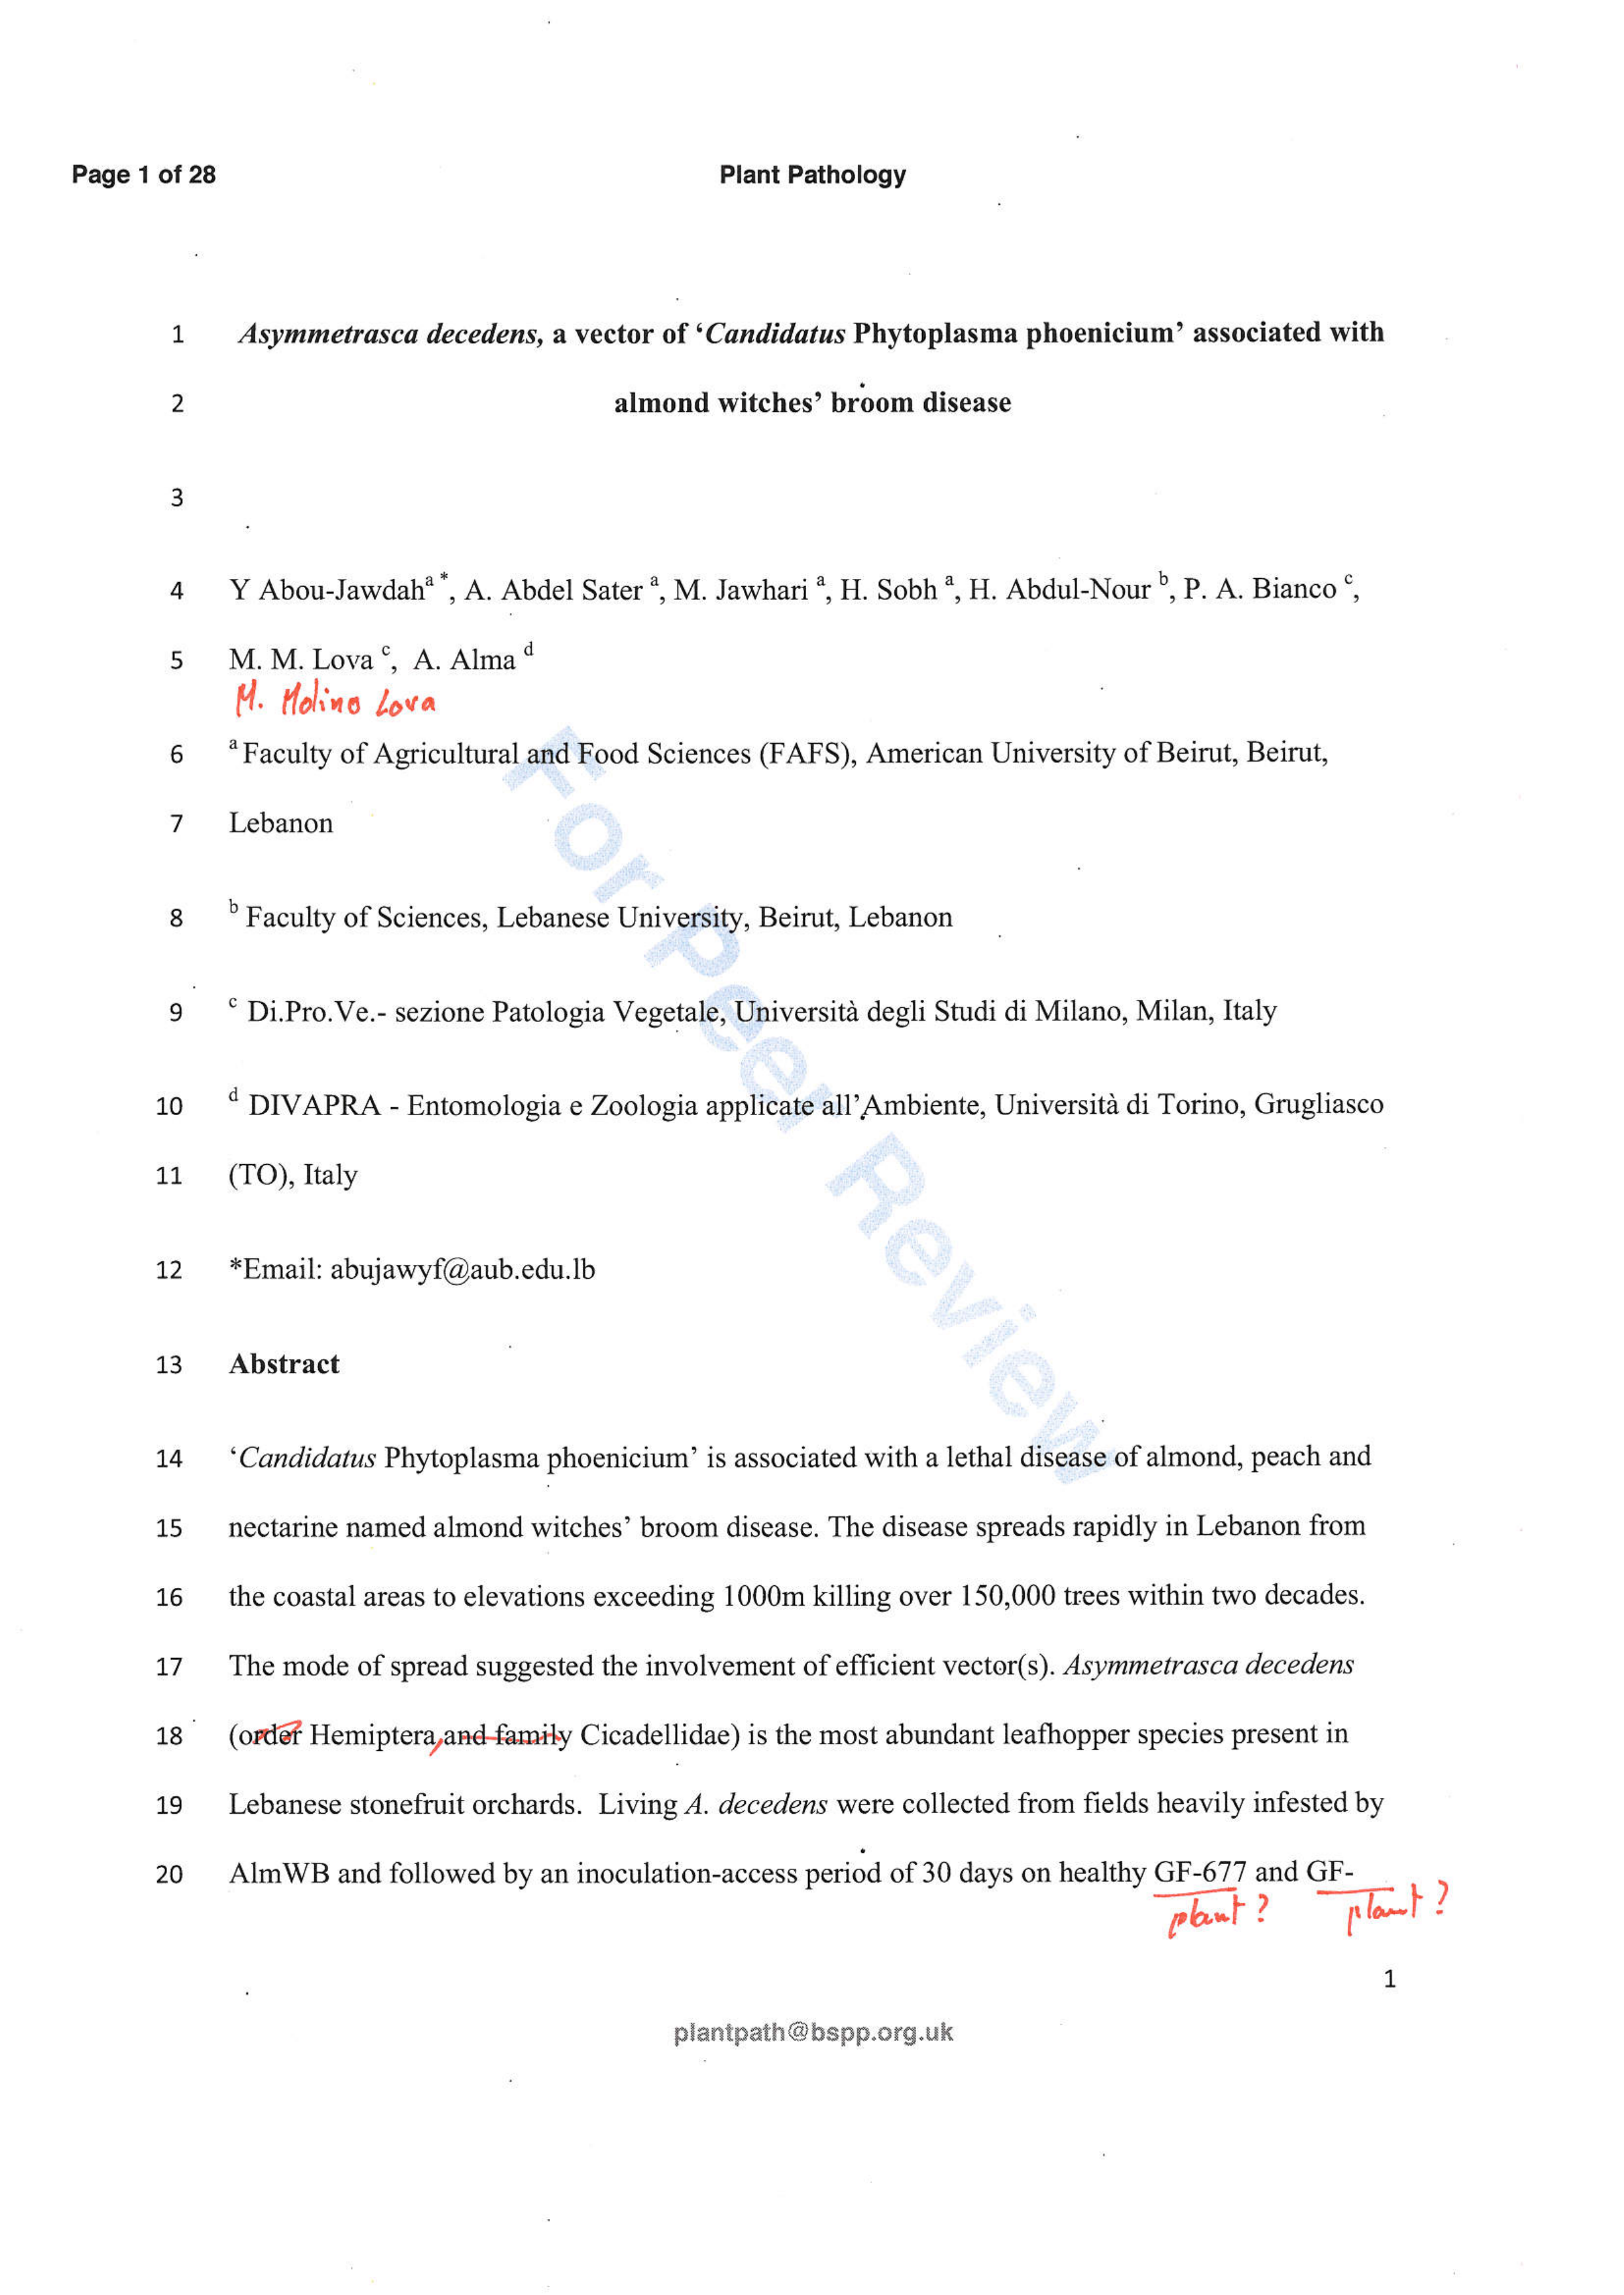 Page 1 of 28 Plant Pathology
1 Asymmetrasca decedens, a vector of ‘Candidatus Phytoplasma phoenicium’ associated with
2 almond witches’ broom disease
3
4 Y Abou-Jawdah a *, A. Abdel Sater a, M. Jawhari a, H. Sobh a, H. Abdul-Nour b, P. A. Bianco c,
5 M. M. Lova c, A. Alma d
M. Molino Lova
6 a Faculty of Agricultural and Food Sciences (FAFS), American University of Beirut, Beirut,
7 Lebanon
8 b Faculty of Sciences, Lebanese University, Beirut, Lebanon
9 c Di.Pro.Ve.- sezione Patologia Vegetale, Università degli Studi di Milano, Milan, Italy
10 d DIVAPRA - Entomologia e Zoologia applicate all’Ambiente, Università di Torino, Grugliasco
11 (TO), Italy
12 *Email: abujawyf@aub.edu.lb
13 Abstract
14 ‘Candidatus Phytoplasma phoenicium’ is associated with a lethal disease of almond, peach and
15 nectarine named almond witches’ broom disease. The disease spreads rapidly in Lebanon from
16 the coastal areas to elevations exceeding 1000m killing over 150,000 trees within two decades.
17 The mode of spread suggested the involvement of efficient vector(s). Asymmetrasca decedens
18 (order Hemiptera, and family Cicadellidae) is the most abundant leafhopper species present in
19 Lebanese stonefruit orchards. Living A. decedens were collected from fields heavily infested by
20 AlmWB and followed by an inoculation-access period of 30 days on healthy GF-677 and GF-
plant? plant?
1
plantpath@bspp.org.uk
For Peer Review